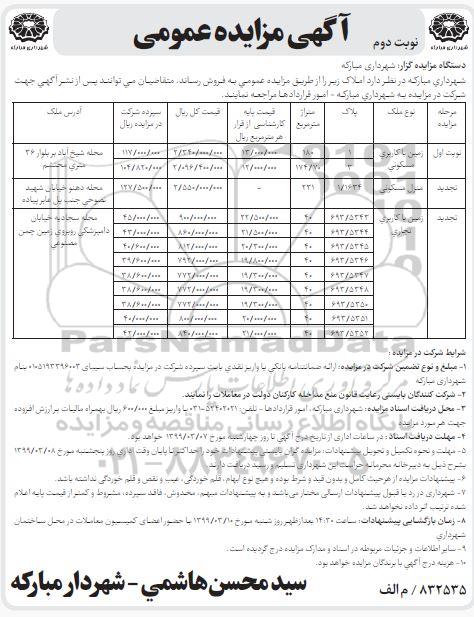 آگهی مزایده عمومی
نوبت دوم
شهرداری مبارکه
شهرداری مبارکه
دستگاه مزایده گزار: شهرداری مبارکه
شهرداري مبارکـه در نظـر دارد امـلاک زیـر را از طریـق مزایـده عمومـي بـه فـروش رساند. متقاضیـان مي توانند پـس از نشـر آگهي جهـت
شرکت در مزایـده به شـهرداري مبارکه - امـور قراردادهـا مراجعـه نماینـد.
مرحله مزایده | نوع ملک | پلاک | متراژ مترمربع | قیمت پایه کارشناسی از قرار هر مترمربع ریال | قیمت کل ریال | سپرده شرکت در مزایده ریال | آدرس ملک
نوبت اول | زمین با کاربري مسکوني | ۱ | ۱۸۰ | ۱۳/۰۰۰/۰۰۰ | ۲/۳۴۰/۰۰۰/۰۰۰ | ۱۱۷/۰۰۰/۰۰۰ | محله شیخ آباد بر بلوار ۳۶ متري محتشم
۲ | ۱۷۴/۷۰ | ۱۲/۰۰۰/۰۰۰ | ۲/۰۹۶/۴۰۰/۰۰۰ | ۱۰۴/۸۲۰/۰۰۰
تجدید | منزل مسکونی | ۱/۱۶۳۴ | ۲۳۱ | - | ۲/۵۵۰/۰۰۰/۰۰۰ | ۱۲۷/۵۰۰/۰۰۰ | محله دهنو خیابان شهید نصوحي جنب پل عابر پیاده
تجدید | زمین با کاربري تجاري | ۶۹۳/۵۳۴۳ | ۴۰ | ۲۲/۵۰۰/۰۰۰ | ۹۰۰/۰۰۰/۰۰۰ | ۴۵/۰۰۰/۰۰۰ | محله سجادیه خیابان دامپزشکي روبروي زمین چمن مصنوعي
۶۹۳/۵۳۴۴ | ۴۰ | ۲۱/۵۰۰/۰۰۰ | ۸۶۰/۰۰۰/۰۰۰ | ۴۳/۰۰۰/۰۰۰
۶۹۳/۵۳۴۵ | ۴۰ | ۲۰/۳۰۰/۰۰۰ | ۸۱۲/۰۰۰/۰۰۰ | ۴۰/۶۰۰/۰۰۰
۶۹۳/۵۳۴۶ | ۴۰ | ۱۹/۸۰۰/۰۰۰ | ۷۹۲/۰۰۰/۰۰۰ | ۳۹/۶۰۰/۰۰۰
۶۹۳/۵۳۴۷ | ۴۰ | ۱۹/۳۰۰/۰۰۰ | ۷۷۲/۰۰۰/۰۰۰ | ۳۸/۶۰۰/۰۰۰
۶۹۳/۵۳۴۸ | ۴۰ | ۱۹/۳۰۰/۰۰۰ | ۷۷۲/۰۰۰/۰۰۰ | ۳۸/۶۰۰/۰۰۰
۶۹۳/۵۳۵۰ | ۴۰ | ۱۹/۳۰۰/۰۰۰ | ۷۷۲/۰۰۰/۰۰۰ | ۳۸/۶۰۰/۰۰۰
۶۹۳/۵۳۵۱ | ۴۰ | ۲۰/۰۰۰/۰۰۰ | ۸۰۰/۰۰۰/۰۰۰ | ۴۰/۰۰۰/۰۰۰
۶۹۳/۵۳۵۲ | ۴۰ | ۲۱/۰۰۰/۰۰۰ | ۸۴۰/۰۰۰/۰۰۰ | ۴۲/۰۰۰/۰۰۰
شرایط شرکت در مزایده :
۱- مبلغ و نوع تضمین شرکت در مزایده: ارائه ضمانتنامه بانکی یا واریز نقدي بابت سپرده شرکت در مزایده بحساب سیبای ۰۱۰۵۱۹۳۳۹۶۰۰۳ بنام
شهرداری مبارکه
۲- شرکت کنندگان بایستی رعایت قانون منع مداخله کارکنان دولت در معاملات را نمایند.
۳- محل دریافت اسناد مزایده: شهرداري مبارکه ، امور قراردادها - تلفن: ۵۲۴۰۲۰۲۱-۰۳۱ با واریز مبلغ ۶۰۰/۰۰۰ ریال بهمراه مالیات بر ارزش افزوده
جهت هر مورد مزایده
۴- مهلت دریافت اسناد: در ساعات اداری از تاریخ درج آگهی تا روز چهارشنبه مورخ ۱۳۹۹/۰۳/۰۷ خواهد بود.
۵- مهلت و نحوه تکمیل و تحویل پیشنهادات: مزایده گران بایستی پیشنهادات خود را حداکثر تا پایان وقت اداري روز پنجشنبه مورخ ۱۳۹۹/۰۳/۰۸
بشرح ذیل به دبیرخانه محرمانه حراست این شهرداري تسلیم و رسید دریافت دارند.
۶- پیشنهادات مزایده از هرحیث کامل و بدون قید و شرط بوده و هیچ نوع ابهام، قلم خوردگي، عیب و نقص و قلم خوردگي نداشته باشد.
۷- شهرداری در رد یا قبول پیشنهادات ارسالی مختار می باشد و به پیشنهادات مبهم، مخدوش، فاقد سپرده، مشروط و کمتر از قیمت پایه اعلام
شده ترتیب اثر داده نخواهد شد.
۸- زمان بازگشایی پیشنهادات: ساعت ۱۴:۳۰ بعدازظهر روز شنبه مورخ ۱۳۹۹/۰۳/۱۰ با حضور اعضای کمیسیون معاملات در محل ساختمان
شهرداري
۹- سایر اطلاعات و جزئیات مربوطه در اسناد و مدارک مزایده درج گردیده است.
۱۰- هزینه درج آگهي با برندگان مزایده خواهد بود.
سید محسن هاشمی - شهردار مبارکه
۸۳۲۵۳۵ / م الف
ParsNamadData
۰۲۱-۸۸۳۴۹۶۷۰-۵